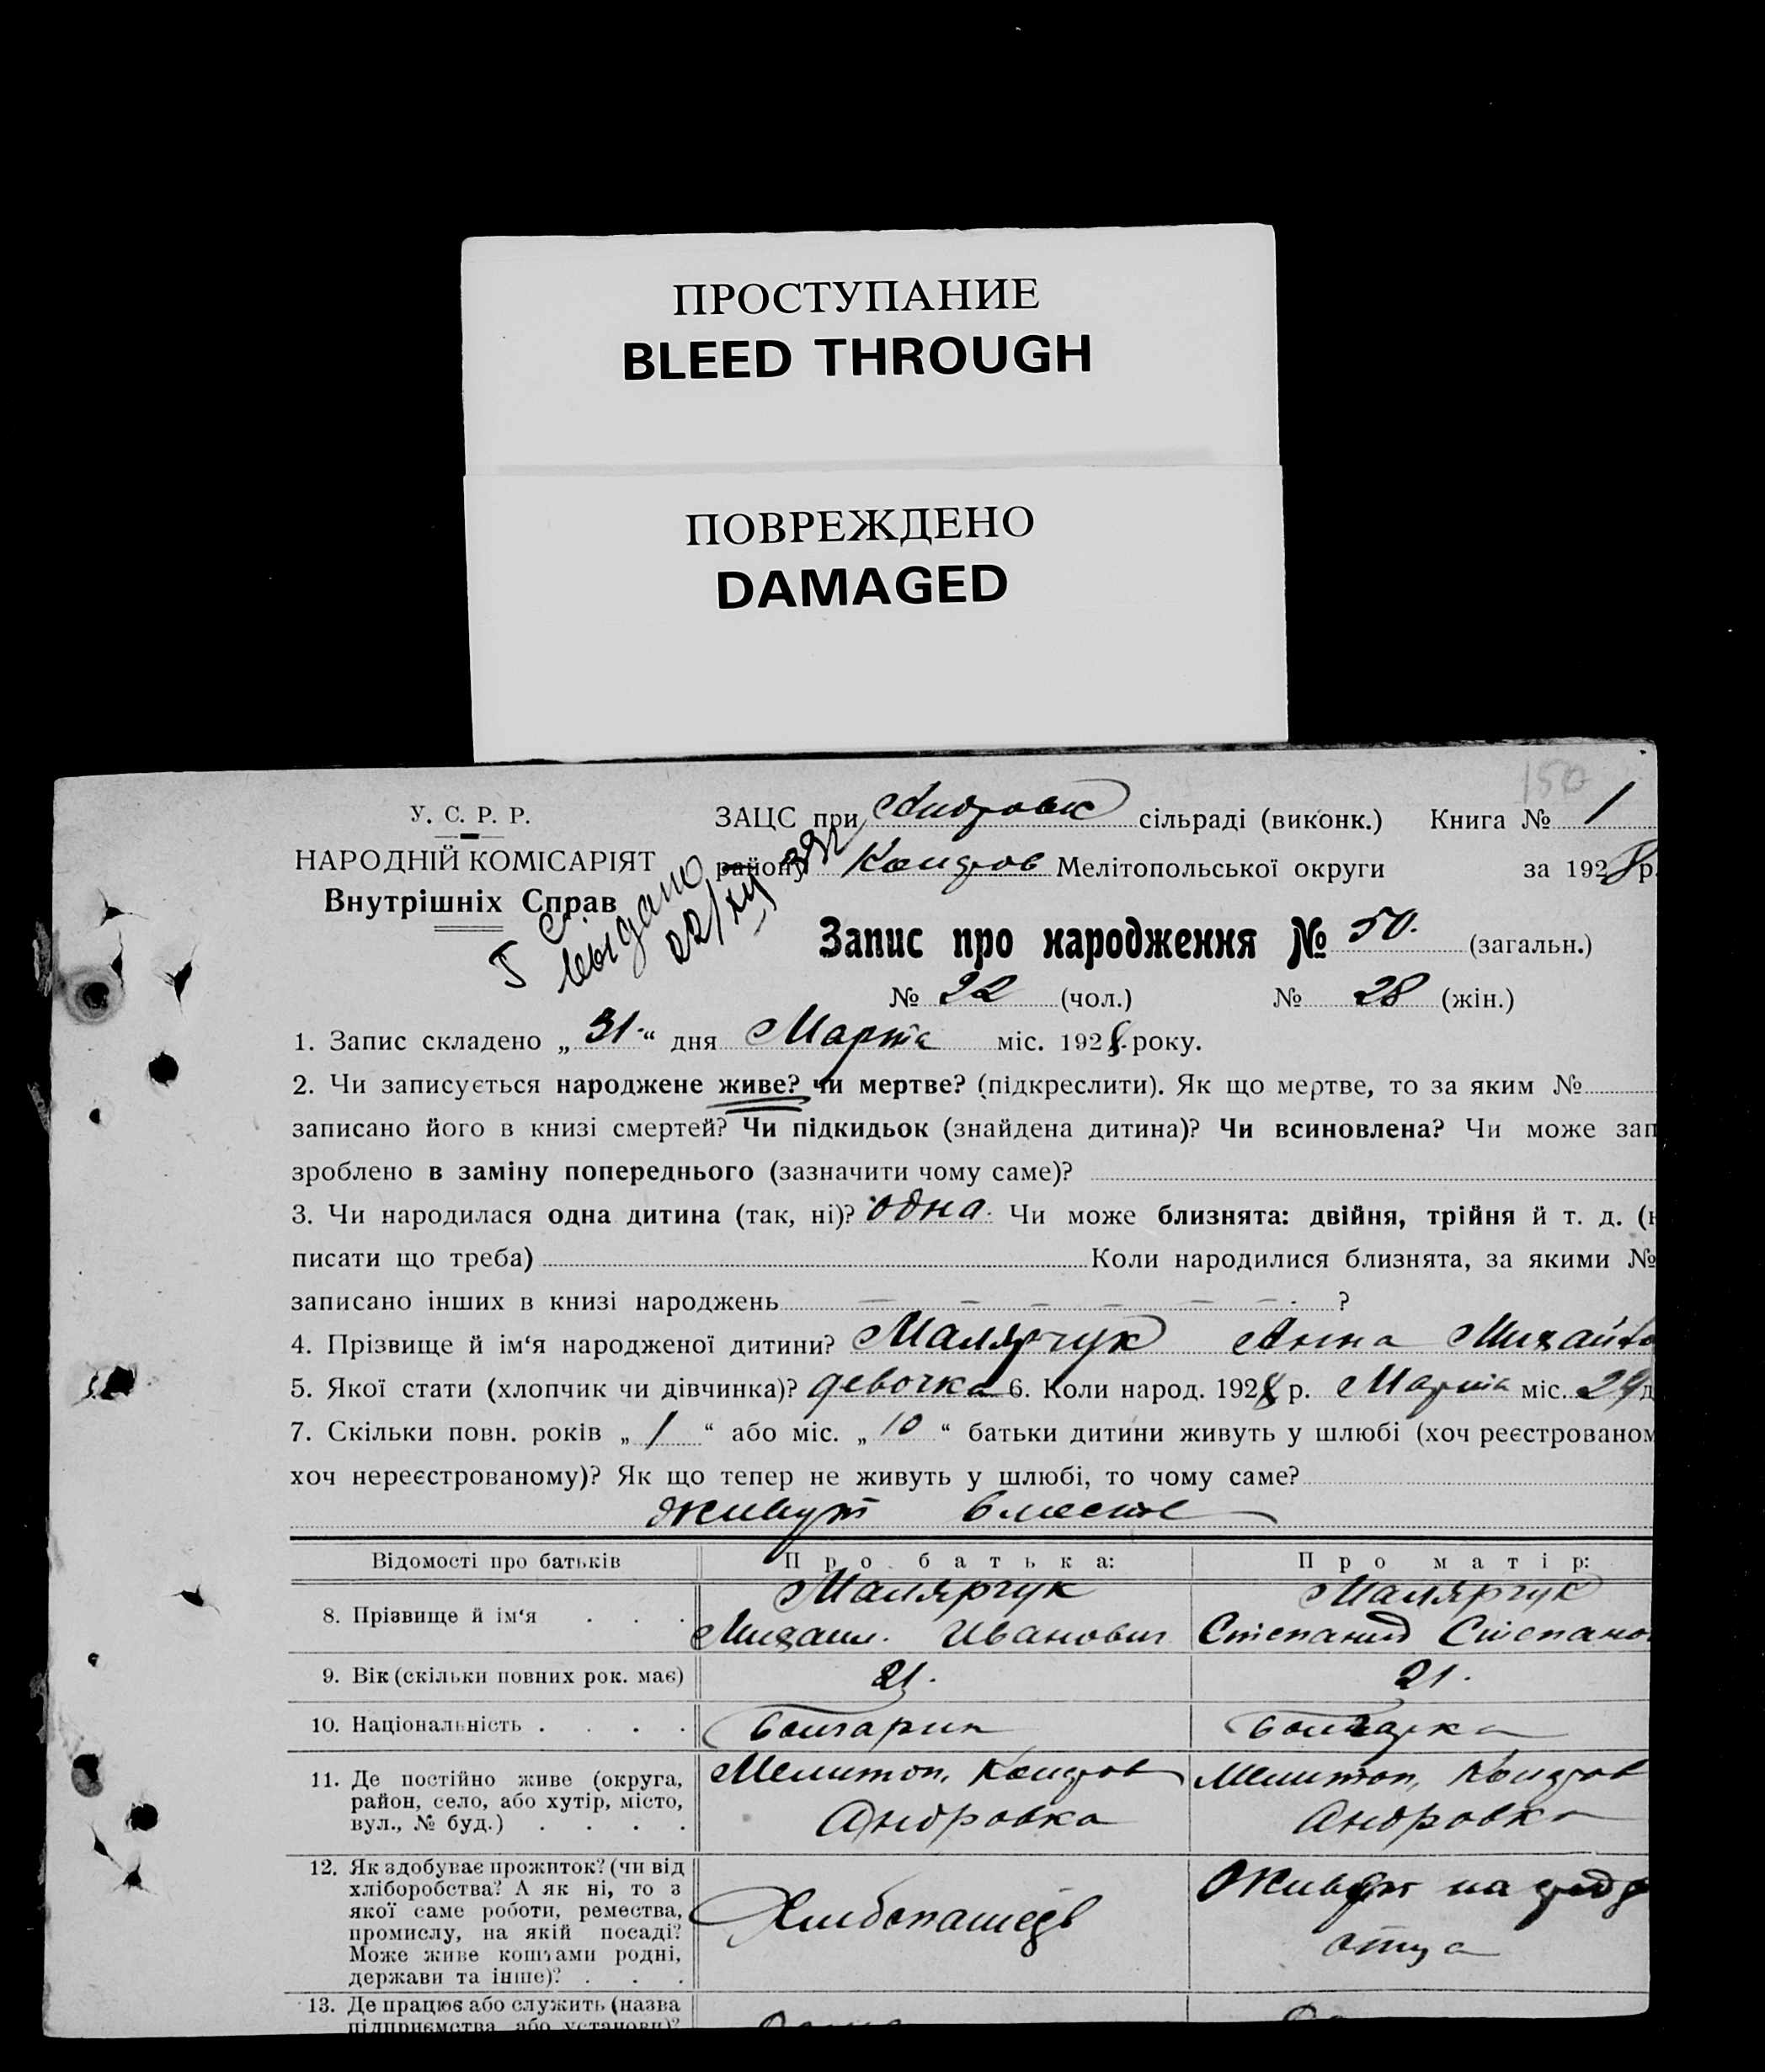 ПРОСТУПАНИЕ
BLEED THROUGH
ПОВРЕЖДЕНО
DAMAGED
150
У. С. Р. Р.
НАРОДНІЙ КОМІСАРІЯТ
Внутрішніх Справ
выдано
ЗАЦС при Андровск сільраді (виконк.) Книга № 1
району Коларов Мелітопольської округи за 1928 р.
Запис про народження № 50. (загальн.)
№ 22 (чол.) № 28 (жін.)
1. Запис складено „31.“ дня Марта міс. 1928. року.
2. Чи записується народжене живе? чи мертве? (підкреслити). Як що мертве, то за яким №
записано його в книзі смертей? Чи підкидьок (знайдена дитина)? Чи всиновлена? Чи може зап
зроблено в заміну попереднього (зазначити чому саме)?
3. Чи народилася одна дитина (так, ні)? одна. Чи може близнята: двійня, трійня й т. д. (н
писати що треба) Коли народилися близнята, за якими №
записано інших в книзі народжень — — — — — — ?
4. Прізвище й ім‘я народженої дитини? Малярчук Анна Михайло
5. Якої стати (хлопчик чи дівчинка)? девочка 6. Коли народ. 1928 р. Марта міс. 29 д
7. Скільки повн. років „1“ або міс. „10“ батьки дитини живуть у шлюбі (хоч реєстрованом
хоч нереєстрованому)? Як що тепер не живуть у шлюбі, то чому саме?
живут вместе
Відомості про батьків Про батька: Про матір:
8. Прізвище й ім‘я . . . Малярчук Малярчук
Михаил. Иванович Степанид Степано
9. Вік (скільки повних рок. має) 21. 21.
10. Національність . . . . болгарин болгарка
11. Де постійно живе (округа, Мелитоп, Коларов Мелитоп, Коларов
район, село, або хутір, місто, Андровка Андровка
вул., № буд.) . . . .
12. Як здобуває прожиток? (чи від Живут на
хліборобства? А як ні, то з Хлибопашедв
якої саме роботи, ремества, отца
промислу, на якій посаді?
Може живе коштами родні,
держави та інше)? . . .
13. Де працює або служить (назва
підприємства або установи)?